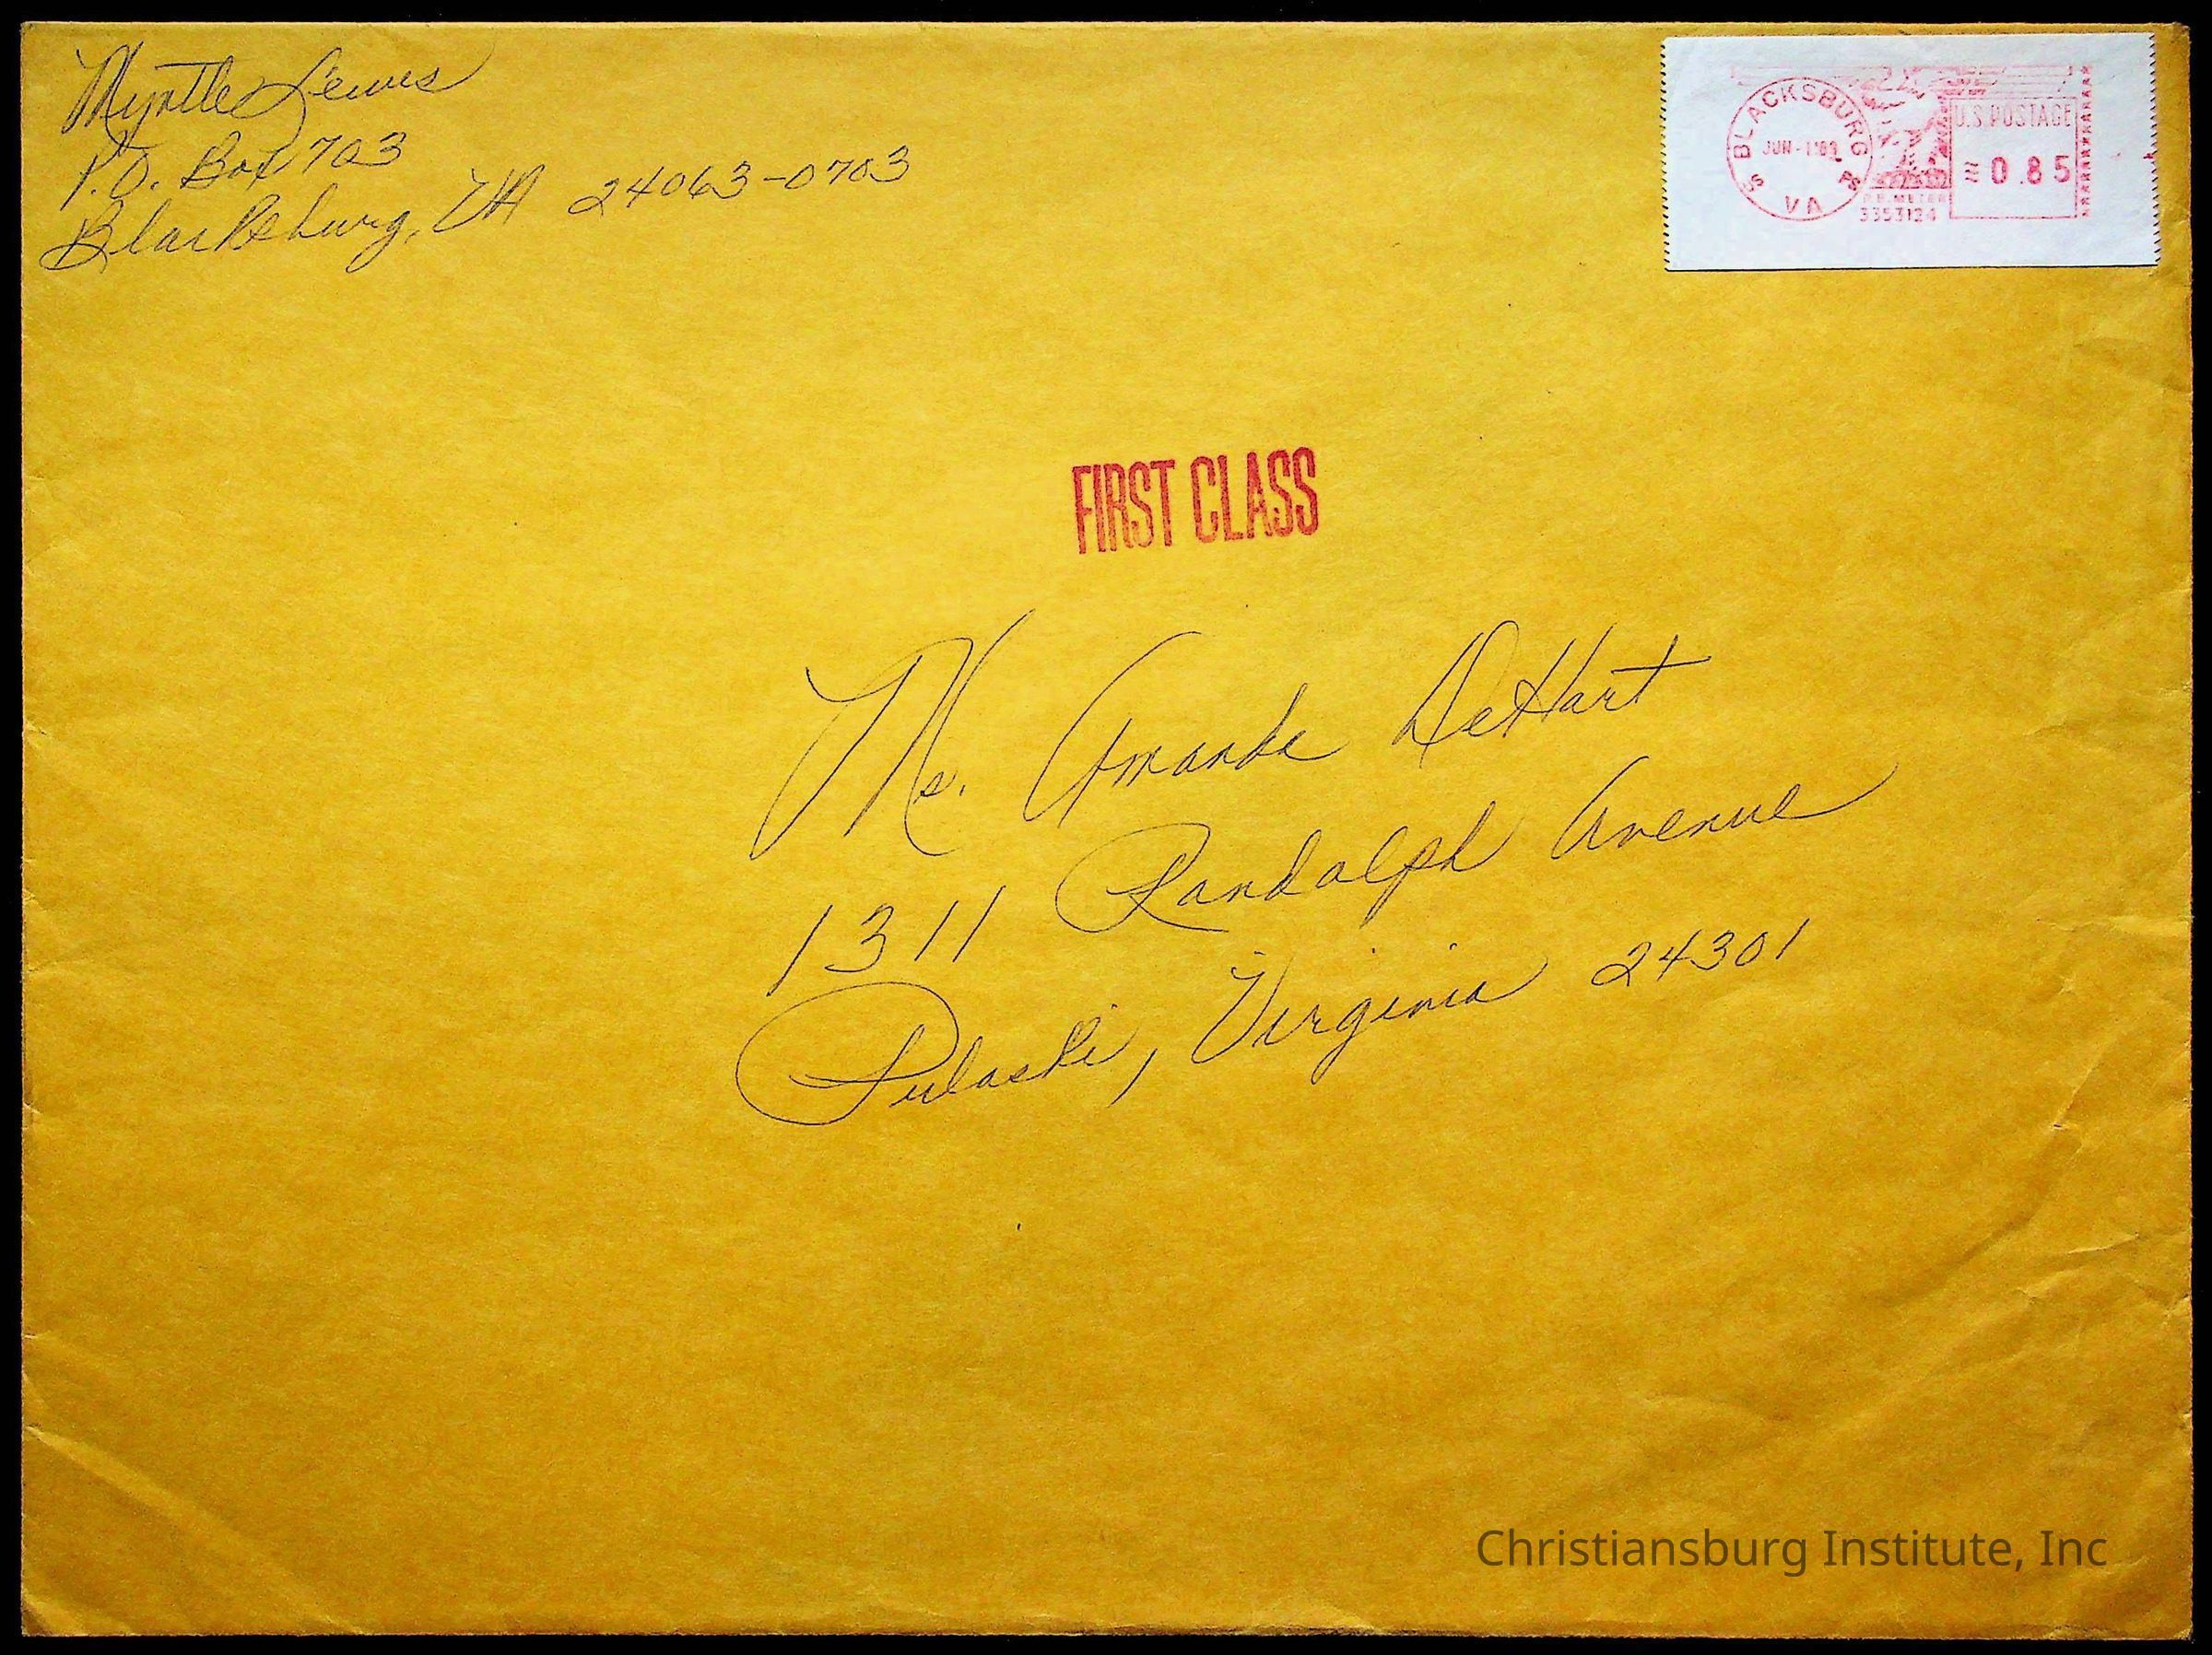 Myrtle Lewis
P.O. Box 703
Blacksburg, VA 24063-0703
BLACKSBURG
VA
U.S. POSTAGE
0.85
P.B. METER
3353124
FIRST CLASS
Ms. Amanda DeHart
1311 Randolph Avenue
Pulaski, Virginia 24301
Christiansburg Institute, Inc